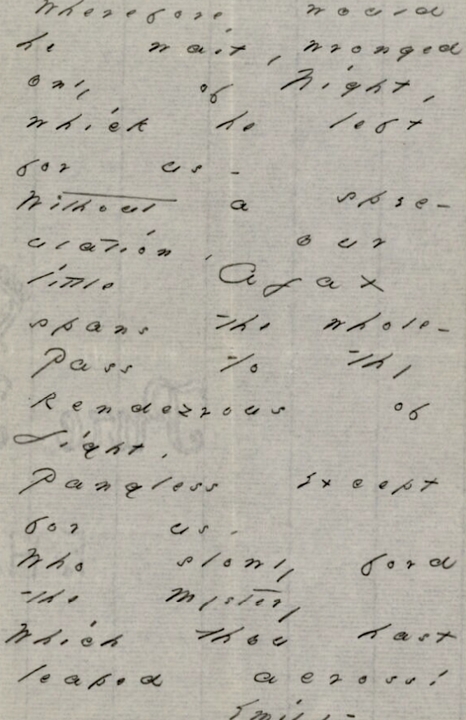 Wherefore would
he wait, wronged
only of Night,
which he left
for us -
Without a spec-
ulation, our
little Ajax
spans the whole -
Pass to thy
Rendezvous of
Light,
Pangless except
for us -
Who slowly ford
the Mystery
Which thou hast
leaped across!
Emily -